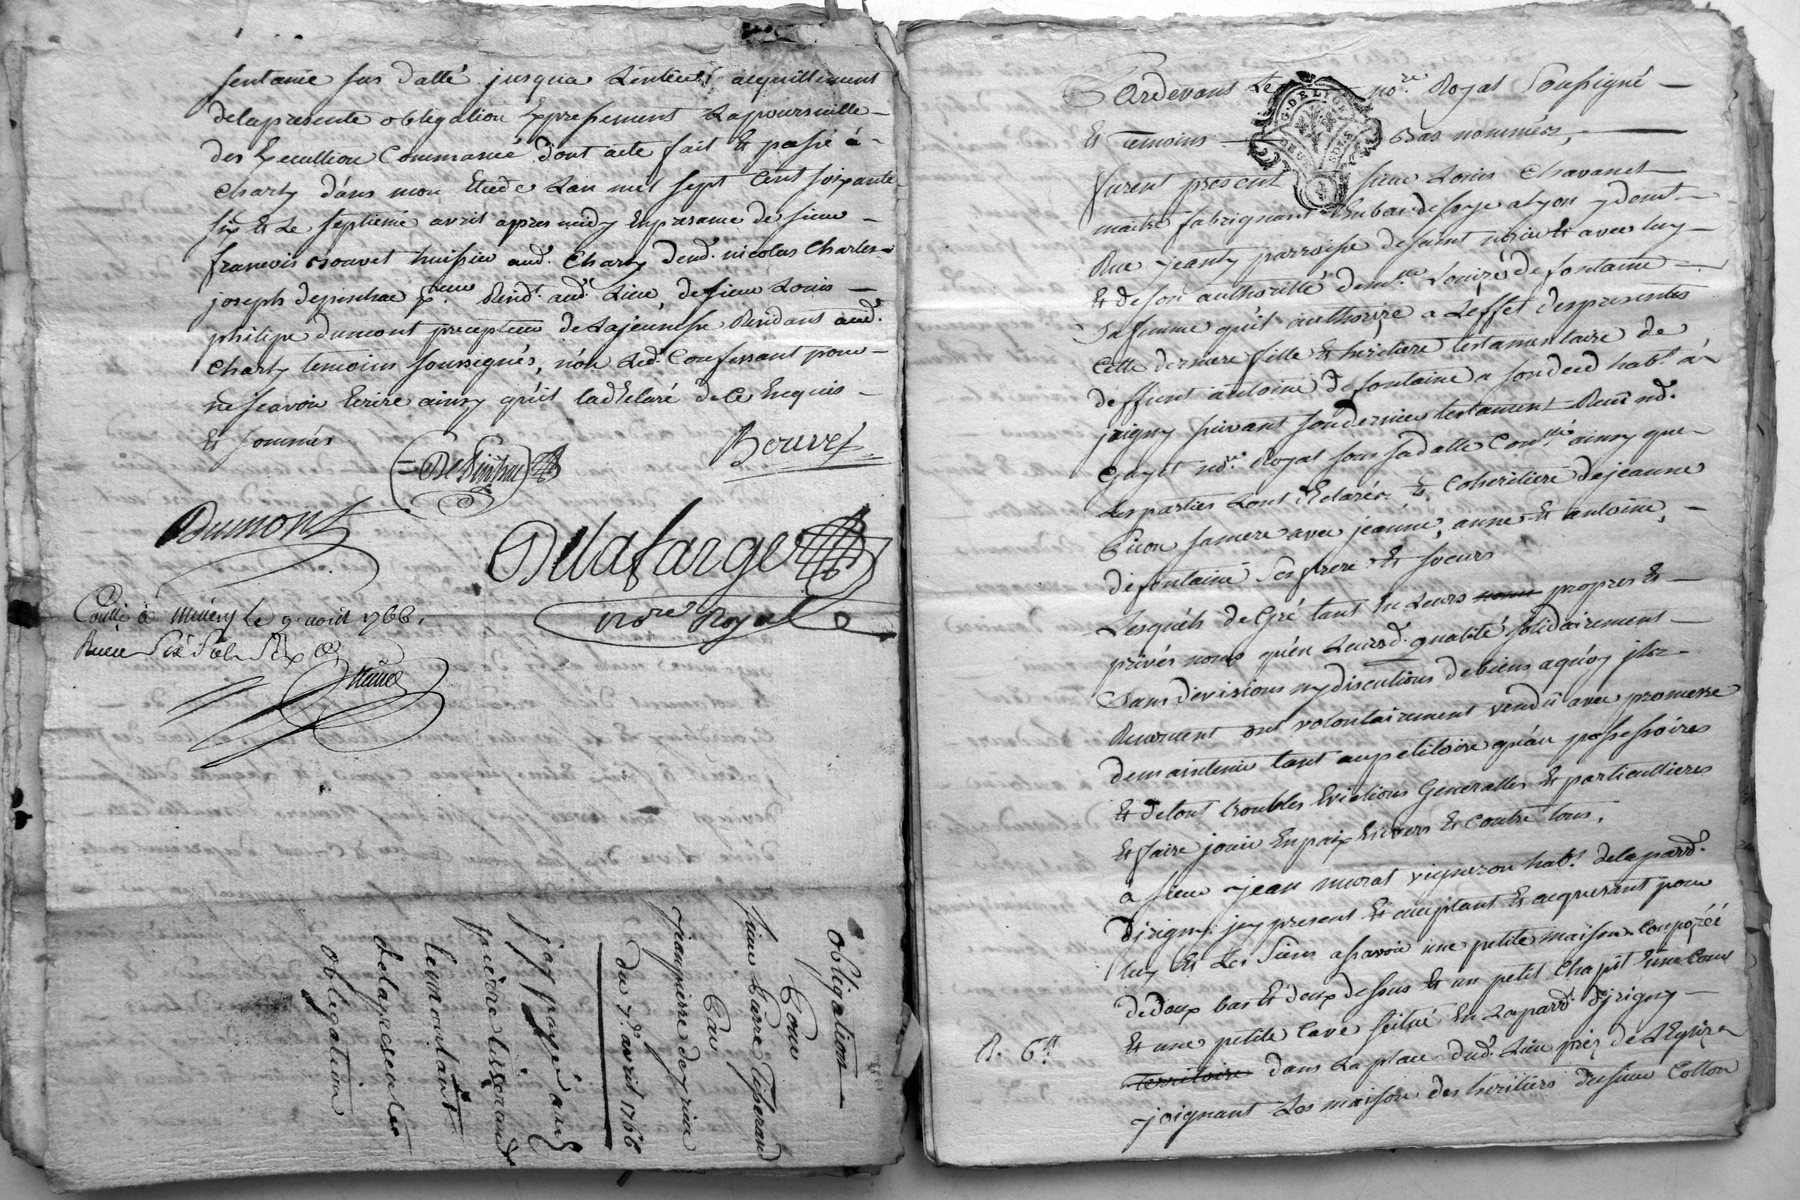 sentance sus datté jusqua Lentier acquittement
delapresente obligation Expressement Lapoursuitte
des Execution Commancé dont acte fait Et passé à
Charly dans mon Etude Lan mil sept Cent soixante
six Et Le septieme avril appres midy En presance de sieur
francois Bouvet huissier aud. Charly dud. nicolas Charles
joseph Resid.t aud. Lieu, de sieur Louis
philipe dumont precepteur de Lajeunesse Residans aud.
Charly temoins soussignés, non Led. Confessant pour
ne scavoir Ecrire ainsy qu'il la déclaré de Ce Enquis
Et sommés
Bouvet
Dumont
Delafarge
no.re Royal
à Millery le 9 août 1766.
Obligation
Pour
sieur pierre
Par
jeanpierre
du 7.e avril 1766
jay payé au S
pierre
le montant
de la presente
obligation
Pardevant Le no.re Royal Soussigné
G. DE LYON
DEUX SOLS
Et Temoins Bas nommés,
furent present sieur Louis Chavanet
maitre fabriquant En bas de soye a Lyon y dem.t
Rue jeanty parroisse de saint nizier Et avec luy
Et de son authorité dem.lle Louize defontaine
Sa femme qu'il authorize a Leffet des presentes
Cette derniere fille Et heritiere testamentaire de
deffunt antoine defontaine a son deced hab.t à
jrigny suivant son dernier testament Reçu M.e
Guyot no.re Royal sous sa datte Con.lle ainsy que
Les parties Lont déclaré Et Coheritiere de jeanne
sa mere avec jeanne, anne Et antoine,
defontaine Ses frere Et soeurs
Lesquels de Gré tant En Leurs propres Et
privés noms qu'en Leursd. qualité solidairement
Sans devizions ny discutions de biens a quoy jls
Renoncent ont volontairement vendû avec promesse
de maintenir tant au petitoire qu'au possessoires
Et de tout troubles Evictions Generalles Et particullieres
Et faire jouir En paix Envers Et Contre tous,
à sieur jean murat vigneron hab.t de laparr.
Djrigny jcy present Et acceptant Et acquerant pour
luy Et Les Siens assavoir une petite maison Compozéé
de deux bas Et deux dessus Et un petit Chapit Une Cour
Et une petite Cave scitué En Laparr. d'jrigny
R. 6.tt
territoire dans La place dud. Lieu près de L'Eglize
joignant Les maison des heritiers du sieur Cotton